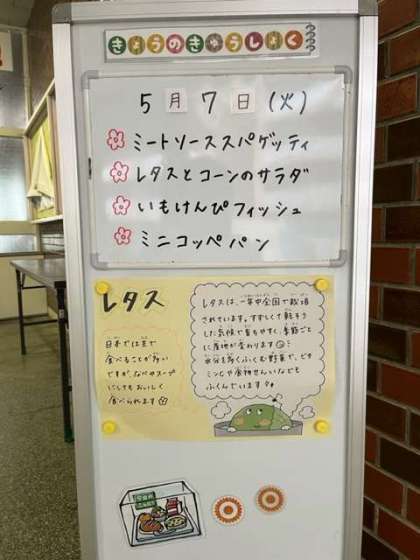 きょうのきゅうしょく
5月7日(火)
ミートソーススパゲッティ
レタスとコーンのサラダ
いもけんぴフィッシュ
ミニコッペパン
レタス
日本では生で
食べることが多い
ですが、なべやスープ
にしてもおいしく
食べられます
レタスは、一年中全国で栽培
されています。すずしくて乾そう
した気候で育ちやすく季節ごと
に産地が変わります
水分を多くふくむ野菜で、ビタ
ミンCや食物せんいなども
ふくんでいます